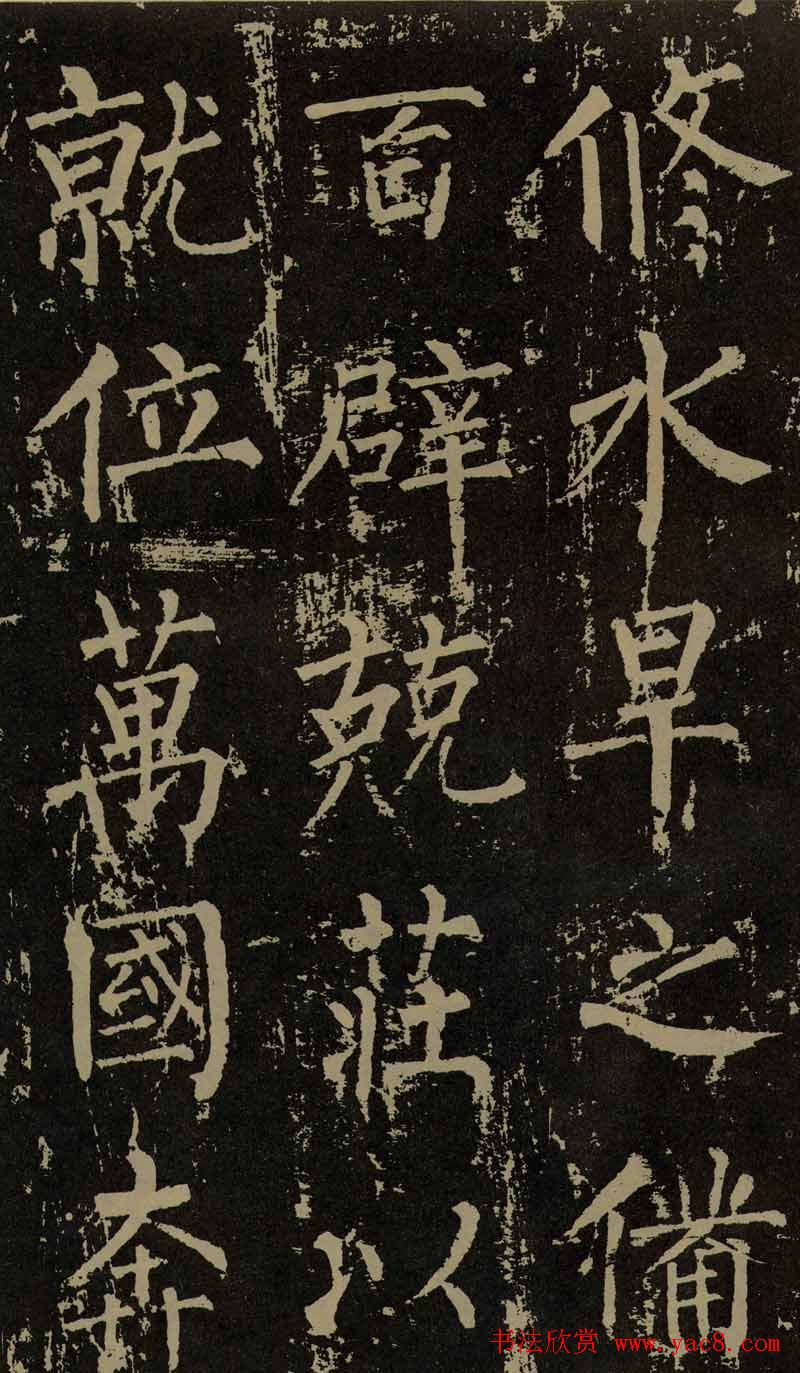 修水旱之備
百辟兢莊以
就位萬國奔
书法欣赏 www.yac8.com